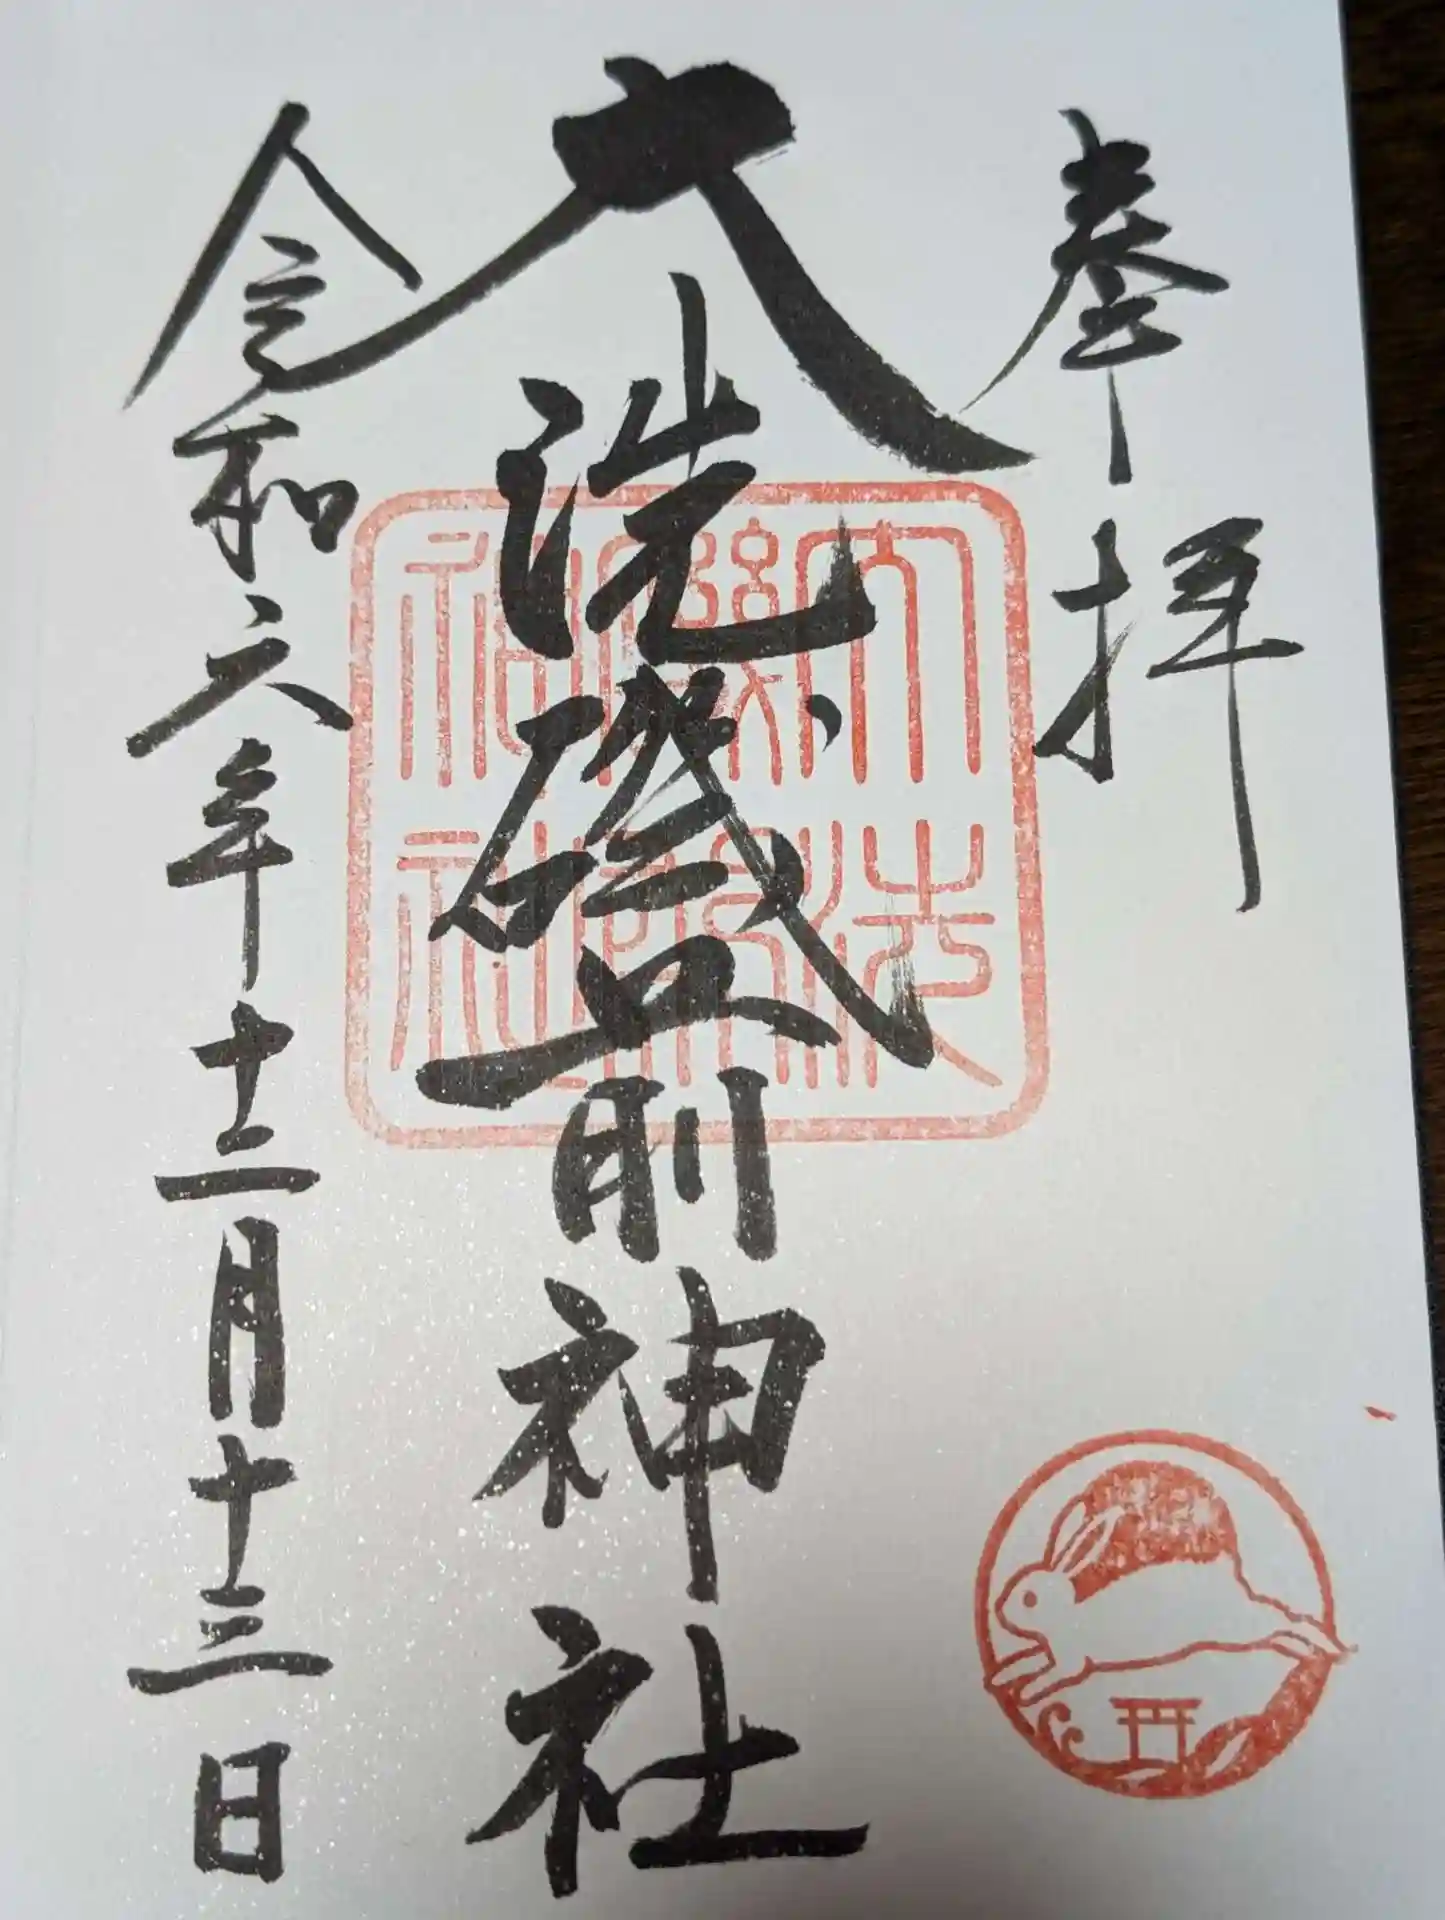 奉拝
大洗磯前神社
令和六年十二月十三日
大洗磯前神社